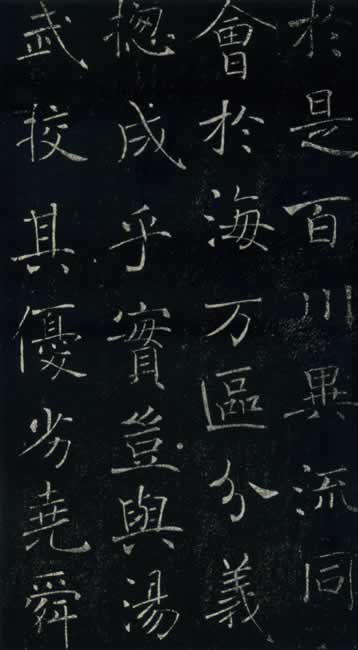 於是百川異流同
會於海万區分義
揔成乎實豈與湯
武挍其優劣堯舜